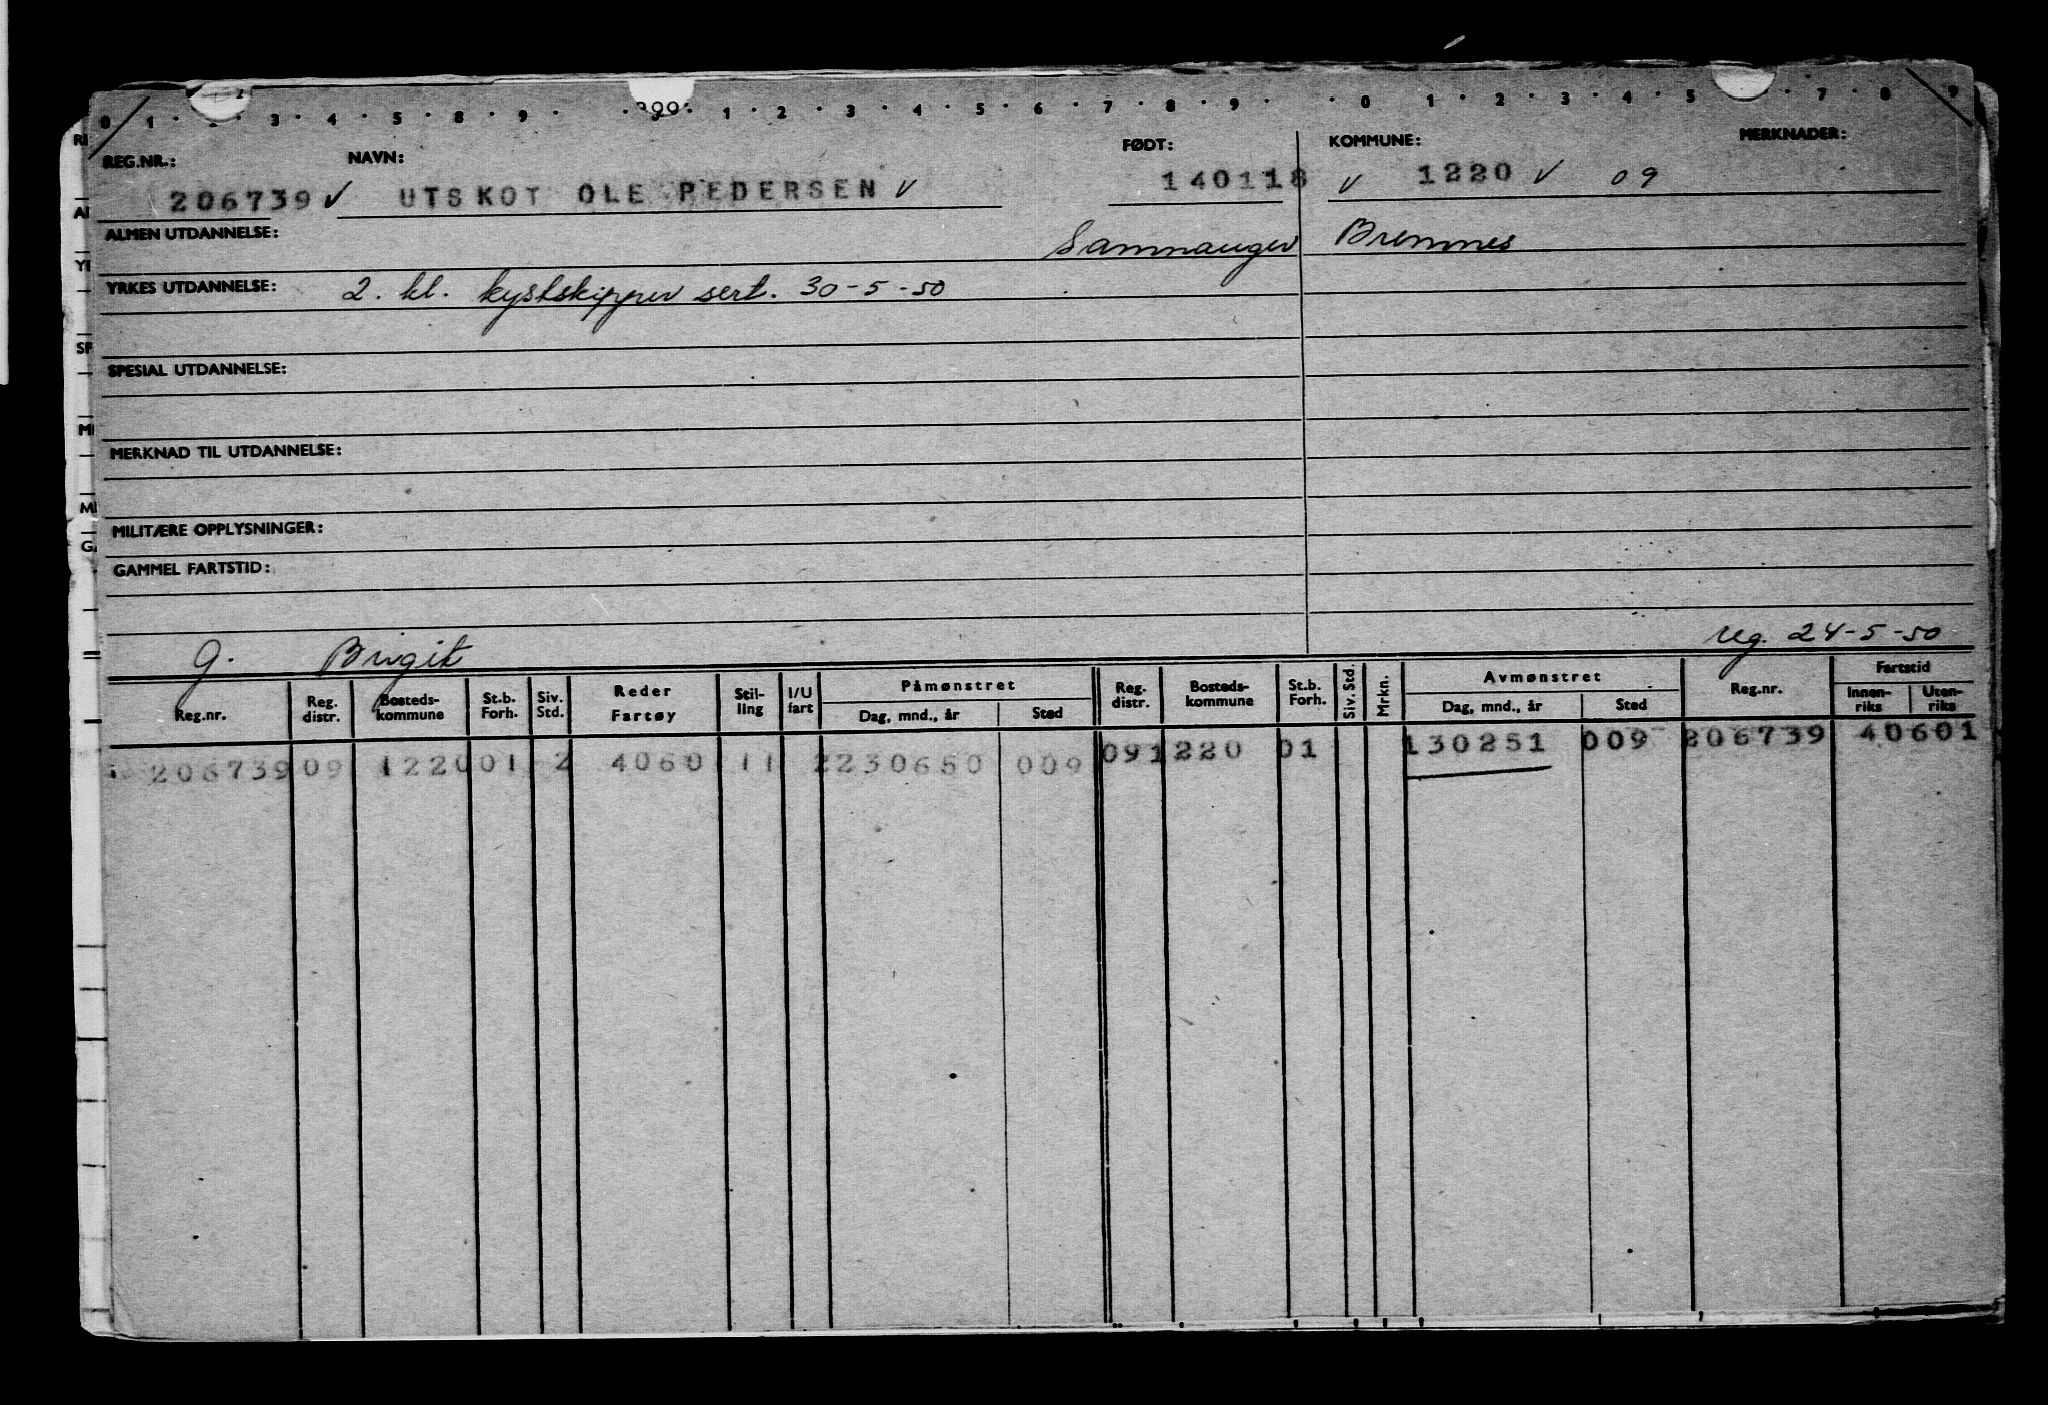 0 1 2 3 4 5 8 9 1 2 3 4 5 6 7 8 9 0 1 2 3 4 5 7 8 9
REG.NR.: NAVN: FØDT: KOMMUNE: MERKNADER:
206739 ✓ UTSKOT OLE PEDERSEN ✓ 140118 ✓ 1220 ✓ 09
ALMEN UTDANNELSE: Samnanger Bremnes
YRKES UTDANNELSE: 2. kl. kystskipper sert. 30-5-50
SPESIAL UTDANNELSE:
MERKNAD TIL UTDANNELSE:
MILITÆRE OPPLYSNINGER:
GAMMEL FARTSTID:
G. Brigit reg. 24-5-50
Reg.nr. Reg. distr. Bosteds-kommune St.b. Forh. Siv. Std. Reder Fartøy Stil-ling I/U fart Påmønstret Dag, mnd., år Sted Reg. distr. Bosteds-kommune St.b. Forh. Siv. Std. Mrkn. Avmønstret Dag, mnd., år Sted Reg.nr. Fartstid Innen-riks Uten-riks
206739 09 1220 01 2 4060 11 2 230650 009 09 1220 01 130251 009 206739 40601